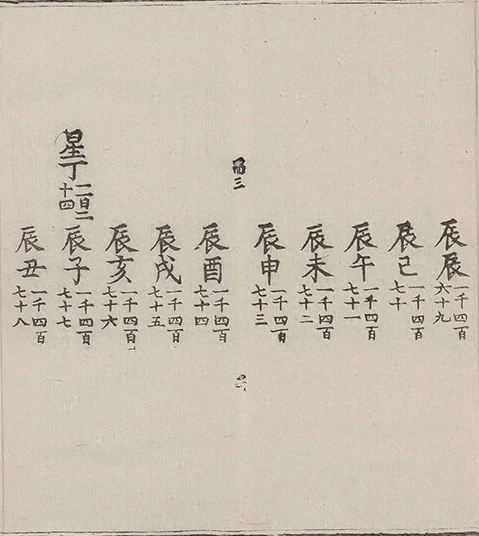 辰辰一千四百六十九
辰巳一千四百七十
辰午一千四百七十一
辰未一千四百七十二
辰申一千四百七十三
辰酉一千四百七十四
辰戌一千四百七十五
辰亥一千四百七十六
星丁一百二十四
辰子一千四百七十七
辰丑一千四百七十八